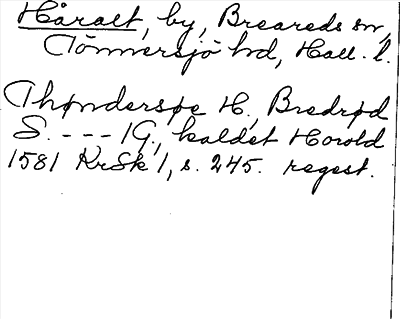 Håralt, by, Breareds sn,
Tönnersjö hd, Hall. l.
Thøndersøe H., Bredrød
S. - - - 1 G., kaldet Horold
1581 KrSk 1, s. 245. regest.